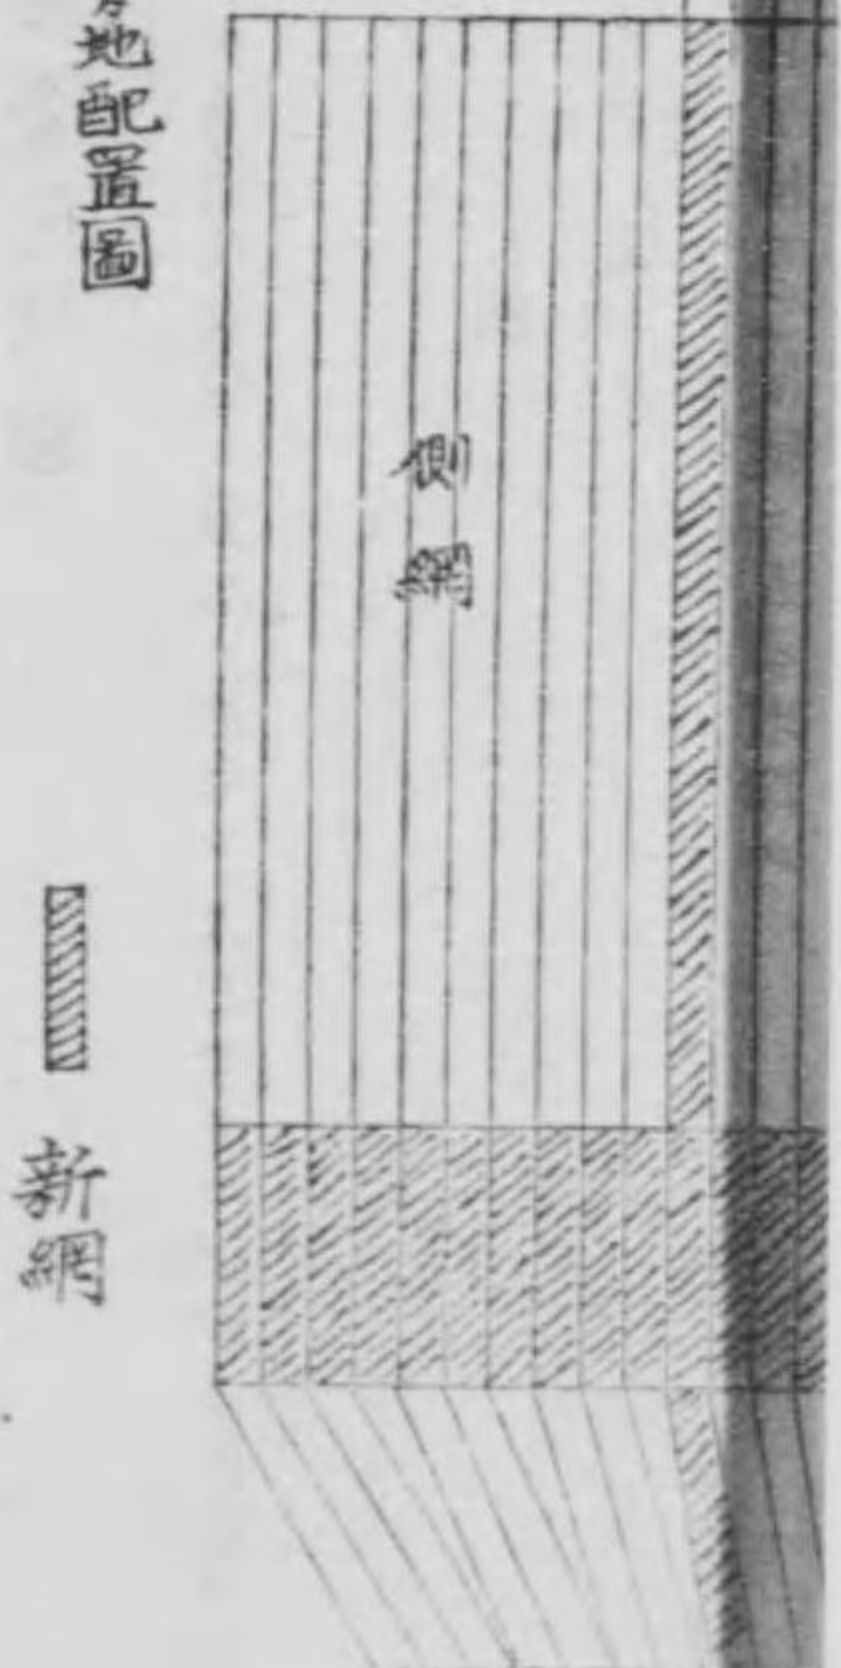 地配置圖
側網
新網